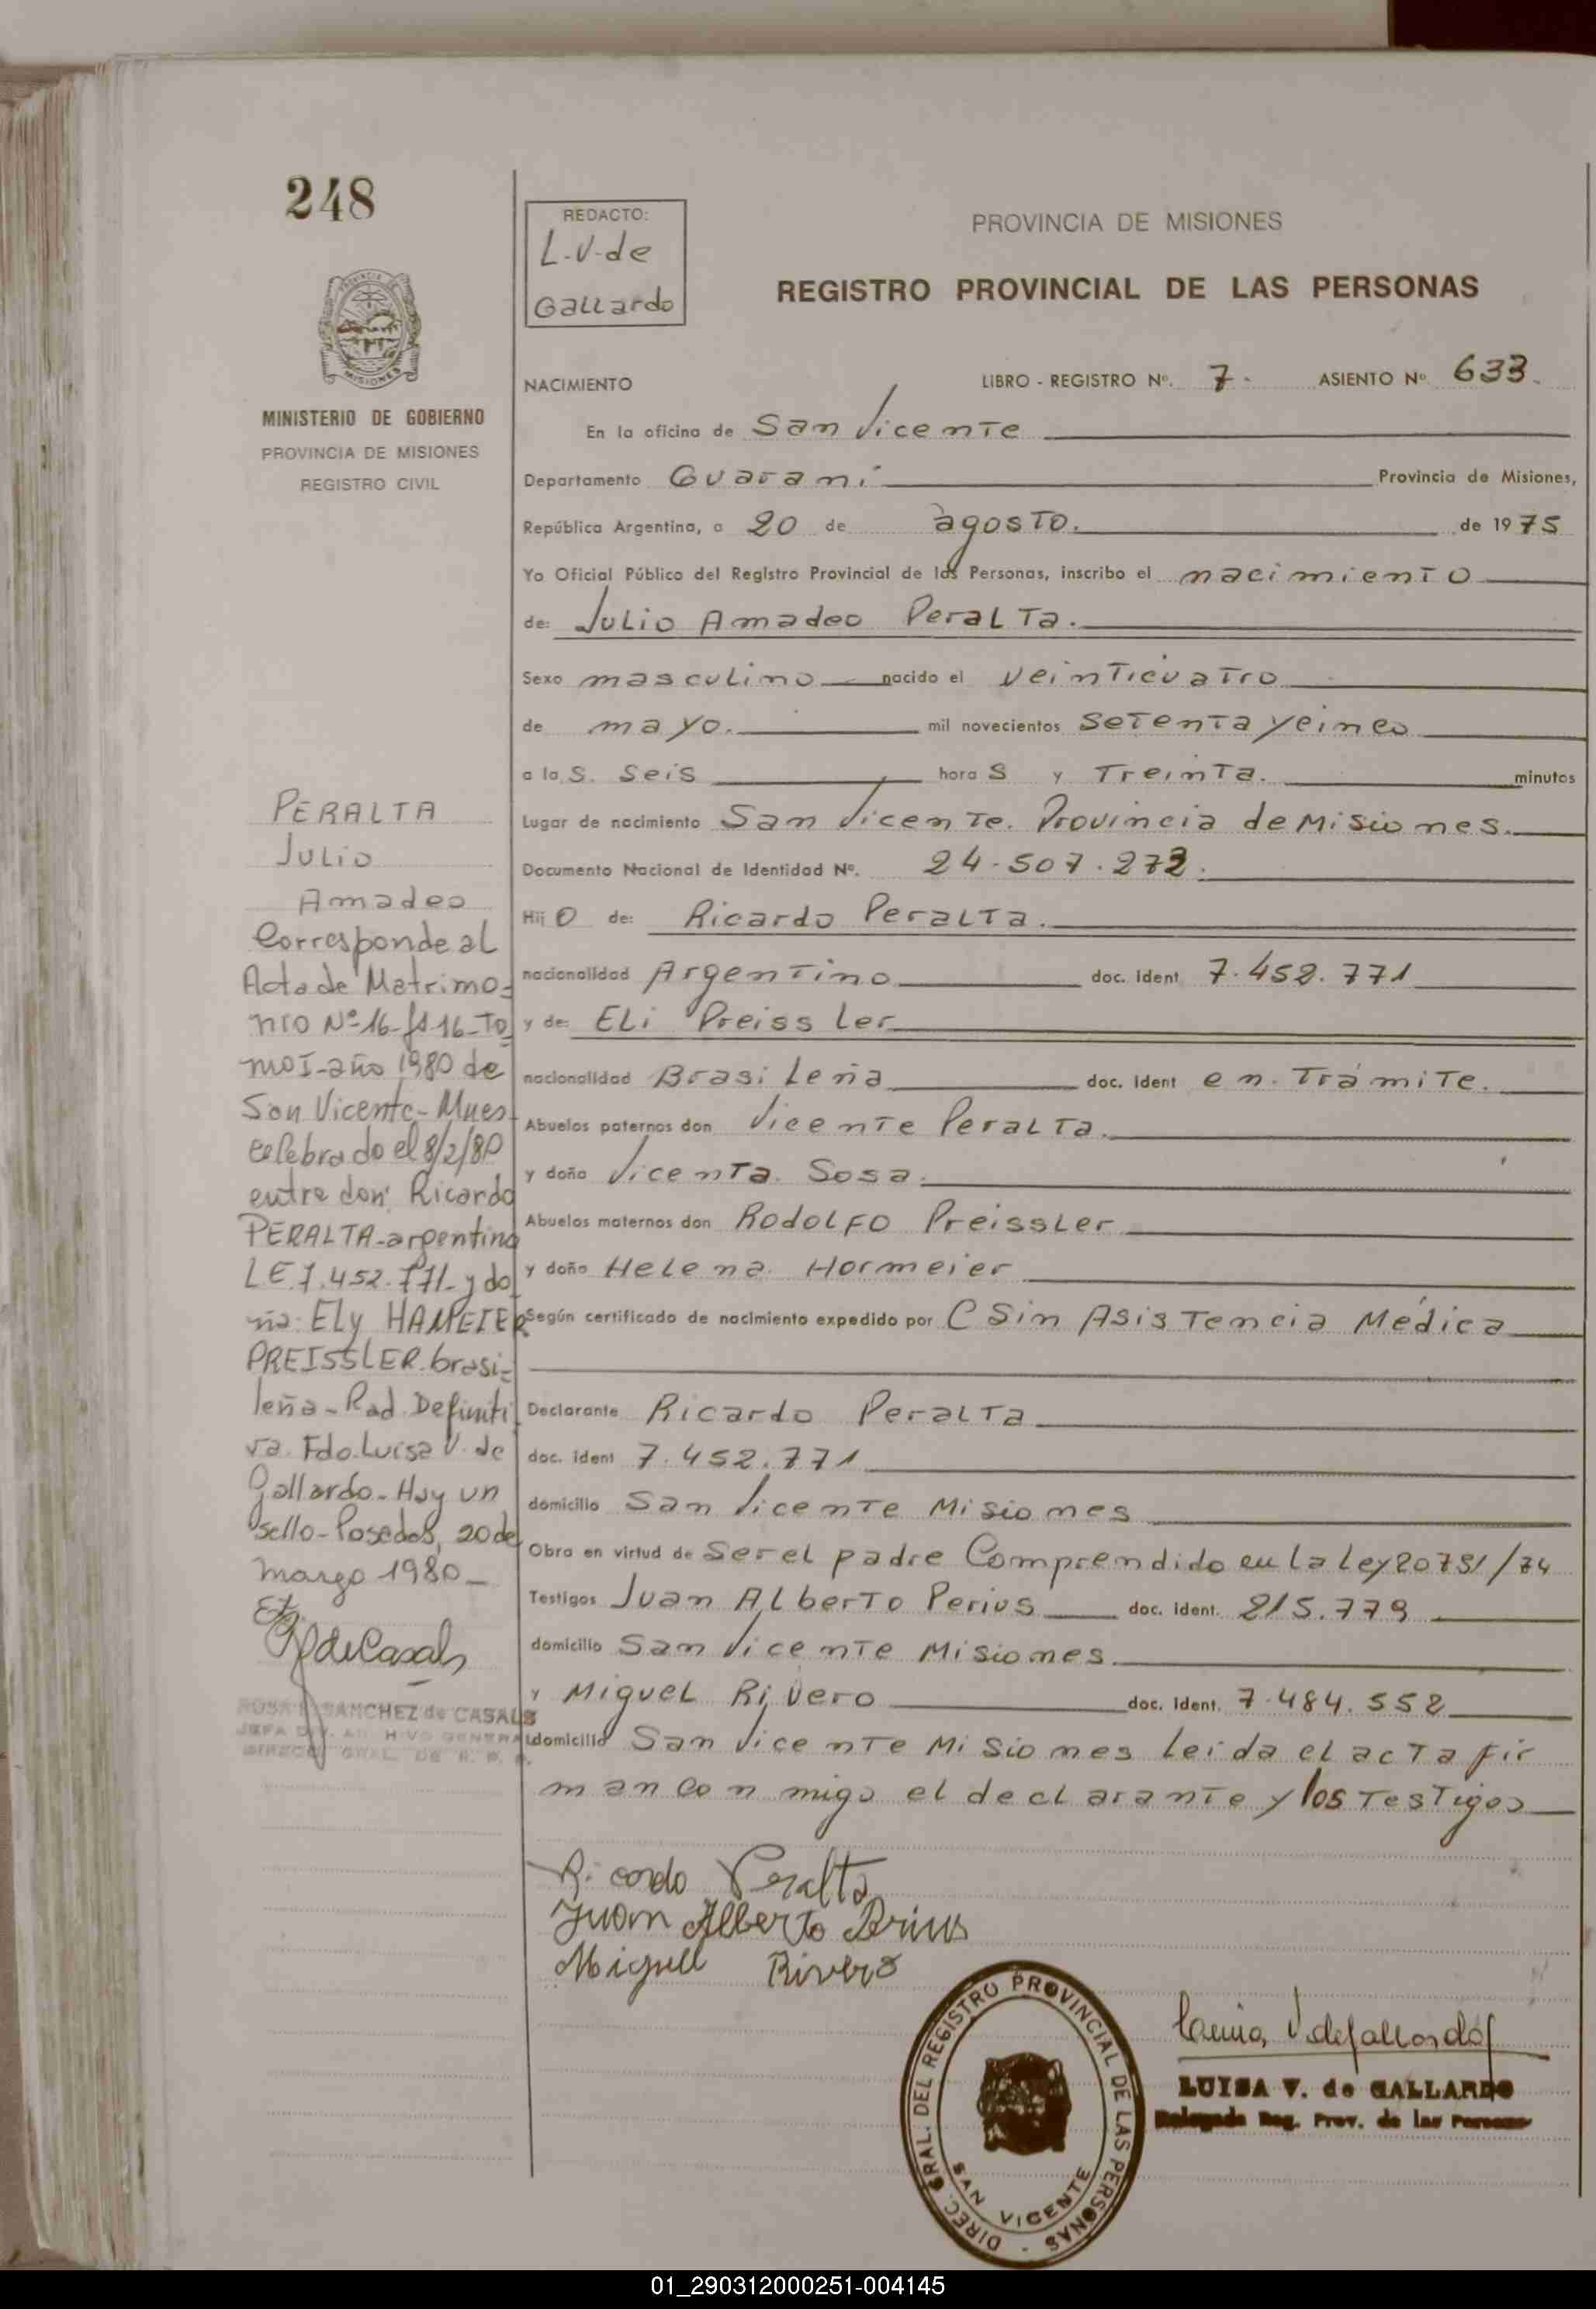 248
MINISTERIO DE GOBIERNO
PROVINCIA DE MISIONES
REGISTRO CIVIL
PERALTA
Julio
Amadeo
Corresponde al
Acta de Matrimo-
nio Nº-16-fº-16-To
moI-año 1980 de
San Vicente-Mnes
celebrado el 8/2/80
entre don: Ricardo
PERALTA-argentino
LE.7.452.771-y do
ña: Ely HAMEIER
PREISSLER.brasi-
leña-Rad.Definiti
va. Fdo.Luisa V. de
Gallardo-Hay un
sello-Posadas, 20 de
marzo 1980-
SANCHEZ de CASALS
REDACTO:
L.V.de
Gallardo
PROVINCIA DE MISIONES
REGISTRO PROVINCIAL DE LAS PERSONAS
NACIMIENTO LIBRO - REGISTRO Nº. 7. ASIENTO Nº 633.
En la oficina de San Vicente
Departamento Guaraní Provincia de Misiones,
República Argentina, a 20 de agosto. de 1975
Yo Oficial Público del Registro Provincial de las Personas, inscribo el nacimiento
de: Julio Amadeo Peralta.
Sexo masculino nacido el veinticuatro
de mayo. mil novecientos setenta y cinco
a las. seis horas y Treinta. minutos
Lugar de nacimiento San Vicente. Provincia de Misiones.
Documento Nacional de Identidad Nº. 24.507.272.
Hijo de: Ricardo Peralta.
nacionalidad Argentino doc. ident 7.452.771
y de: Eli Preissler
nacionalidad Brasileña doc. ident en. Trámite.
Abuelos paternos don Vicente Peralta.
y doña Vicenta. Sosa.
Abuelos maternos don Rodolfo Preissler
y doña Helena Hormeier
Según certificado de nacimiento expedido por C Sin Asistencia Médica
Declarante Ricardo Peralta
doc. ident 7.452.771
domicilio San Vicente Misiones
Obra en virtud de ser el padre Comprendido en la Ley 20751/74
Testigos Juan Alberto Perius doc. ident. 215.779
domicilio San Vicente Misiones.
y Miguel Rivero doc. ident. 7.484.552
domicilio San Vicente Misiones leída el acta fir
man conmigo el declarante y los testigos
Ricardo Peralta
Juan Alberto Perius
Miguel Rivero
DIREC. GRAL. DEL REGISTRO PROVINCIAL DE LAS PERSONAS -
SAN VICENTE
Luisa V de Gallardo
LUISA V. de GALLARDO
Delegada Reg. Prov. de las Personas
01_290312000251-004145